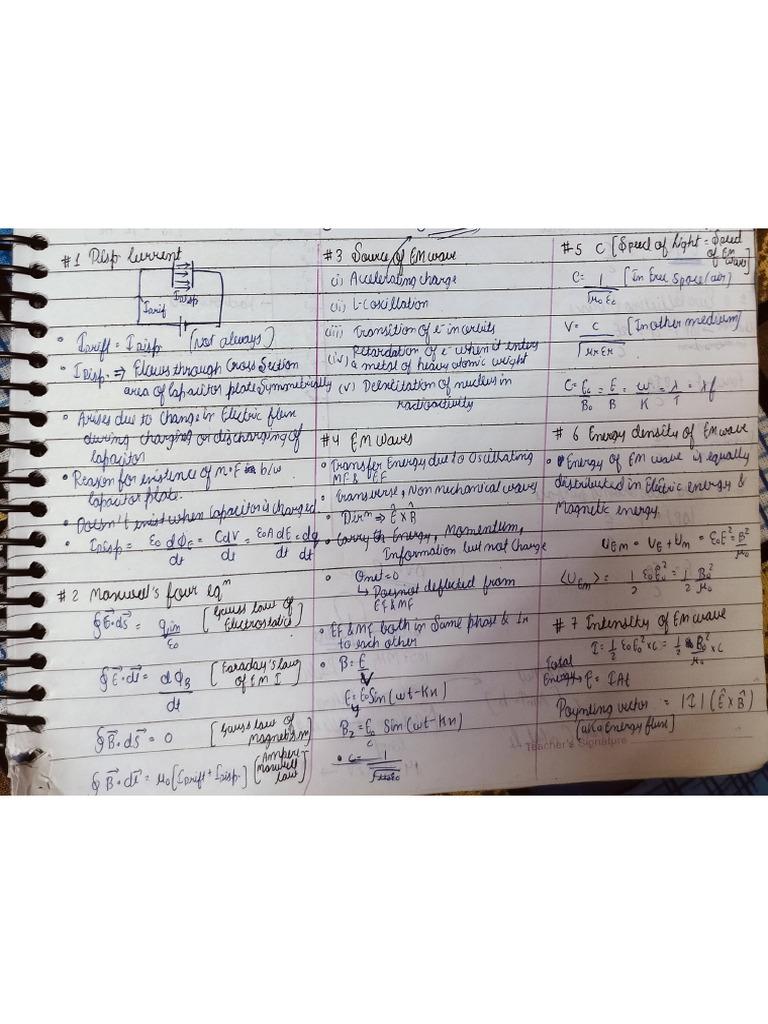 #1 Disp Current
Idisp
Idrif
• Idrift = Idisp (Not always)
• IDisp. ⇒ Flows through Cross Section
area of Capacitor plate Symmetrically
• Arises due to Change in Electric flux
during charging or discharging of
Capacitor
• Reason for existence of M.F b/w
Capacitor plate.
• Doesn't exist when Capacitor is charged
• IDisp = ε0 dΦE/dt = CdV/dt = ε0A dE/dt = dq/dt
#2 Maxwell's four eqn
∮E⃗·ds⃗ = qin/ε0 [Gauss law of Electrostatic]
∮E⃗·dl⃗ = dΦB/dt [Faraday's law of EMI]
∮B⃗·ds⃗ = 0 [Gauss law of Magnetism]
∮B⃗·dl⃗ = μ0[Idrift + Idisp] [Ampere Maxwell law]
#3 Source of EM wave
(i) Accelerating charge
(ii) L-C oscillation
(iii) Transition of e- in orbits
(iv) Retardation of e- when it enters
a metal of heavy atomic weight
(v) Deexcitation of nucleus in
radioactivity
#4 EM waves
• Transfer Energy due to Oscillating
MF & EF
• Transverse, Non Mechanical waves
• Dirn ⇒ Ê x B̂
• Carry Energy, Momentum,
Information but not Charge
• Qnet = 0
↳ Does not deflected from
EF & MF
• EF & MF both in Same phase & Ir
to each other
• B = E/V
Ey = E0 Sin(ωt-Kx)
Bz = E0/c Sin(ωt-Kx)
• C = 1/√μ0ε0
#5 C [Speed of light = Speed of EM wave]
C = 1/√μ0ε0 [In free Space/air]
V = C/√μrεr [In other medium]
C = E0/B0 = E/B = ω/K = λ/T = λf
#6 Energy density of EM wave
• Energy of EM wave is equally
distributed in Electric energy &
Magnetic energy
UEm = UE + Um = ε0E² = B²/μ0
⟨UEm⟩ = 1/2 ε0E0² = 1/2 B0²/μ0
#7 Intensity of EM wave
I = 1/2 ε0E0² x C = 1/2 B0²/μ0 x C
Total
Energy → E = IAt
Poynting vector = |I| (Ê x B̂)
(aka Energy flux)
Teacher's Signature